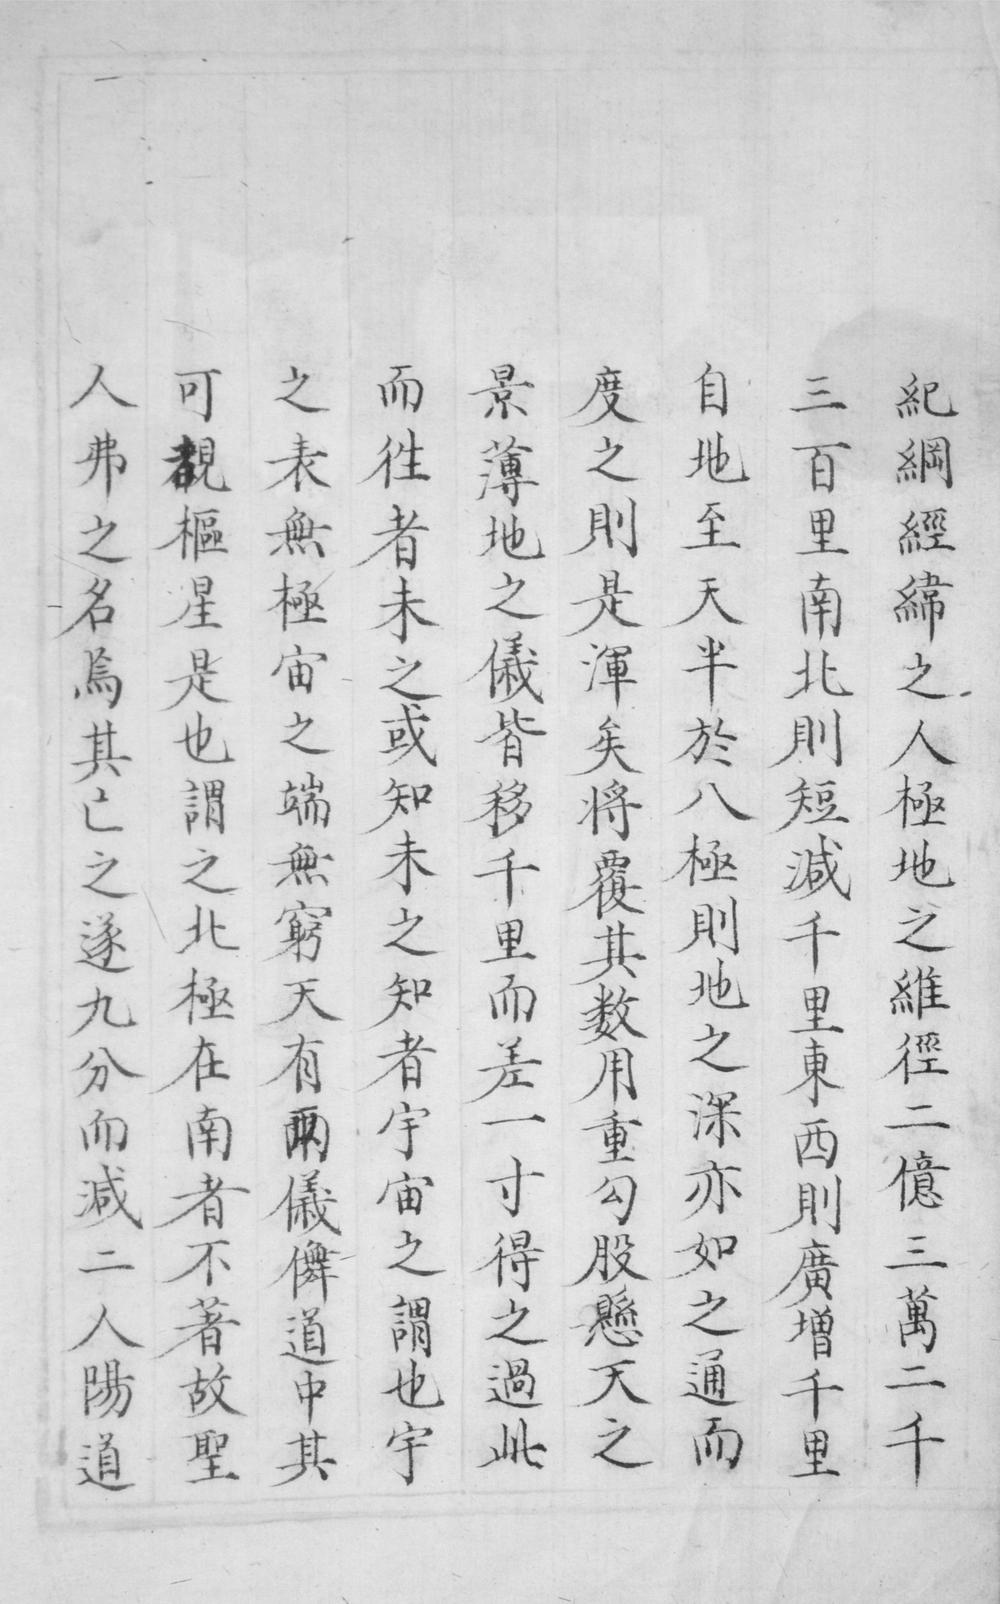 紀綱經緯之人極地之維徑二億三萬二千
三百里南北則短減千里東西則廣增千里
自地至天半於八極則地之深亦如之通而
度之則是渾矣将覆其数用重勾股懸天之
景薄地之儀皆移千里而差一寸得之過此
而徃者未之或知未之知者宇宙之謂也宇
之表無極宙之端無窮天有兩儀儛道中其
可覩樞星是也謂之北極在南者不著故聖
人弗之名焉其亡之遂九分而減二人陽道